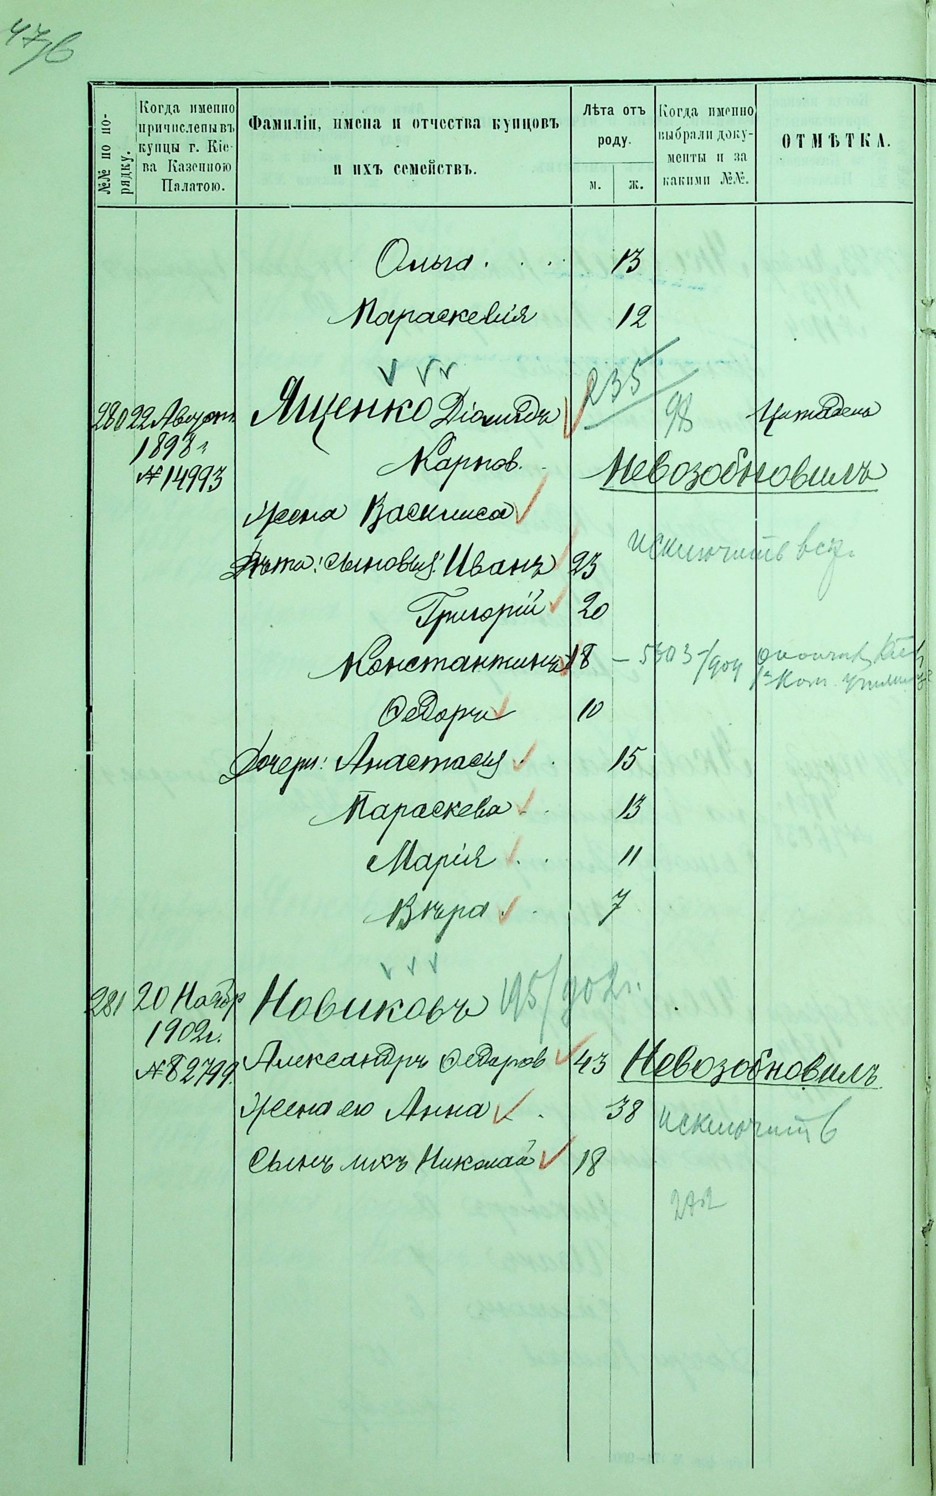 47/б
№№ по по-
рядку.
Когда именно
причислены въ
купцы г. Кіе-
ва Казенною
Палатою.
Фамиліи, имена и отчества купцовъ
и ихъ семействъ.
Лѣта отъ
роду.
м. ж.
Когда именно
выбрали доку-
менты и за
какими №№.
ОТМѢТКА.
Ольга . . . . 13
Параскевія 12
235
280 22 Августа Ященко Діомидъ 98 Цитадель
1893 г
№ 14993
Карпов. Невозобновилъ
жена Василиса
исключить
Дѣти: сыновья: Иванъ 23
Григорій 20
Константинъ 18 – 5303
Ѳедоръ 10
Дочери: Анастасія . . 15
Параскева . . 13
Марія . . 11
Вѣра . . 7
281 20 Ноябр Новиковъ 195/902г.
1902г.
№ 82799. Александръ Ѳедоров 43 Невозобновилъ
Жена его Анна . 38 исключить
сынъ ихъ Николай 18
272